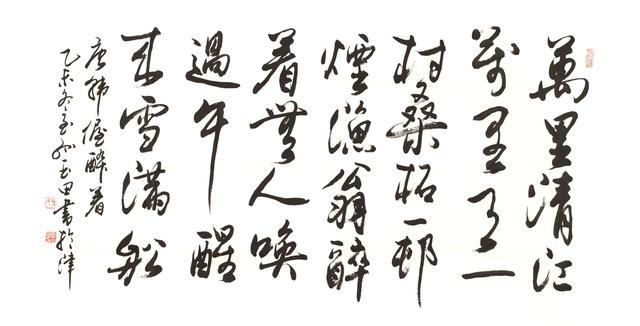 萬里清江
萬里天一
村桑柘一邨
煙漁翁醉
着無人喚
過午醒
来雪滿船
唐韩偓醉着
乙未冬至玉田書於津